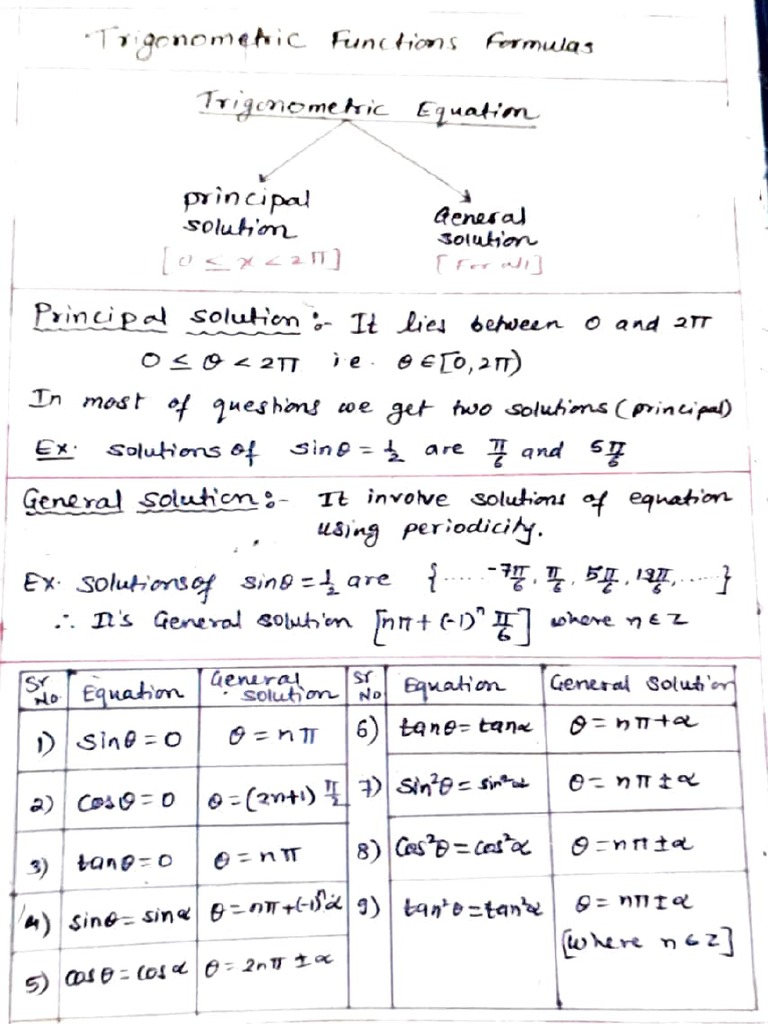 Trigonometric Functions Formulas
Trigonometric Equation
principal solution
[0 ≤ x < 2π]
General solution
[For all]
Principal solution :- It lies between 0 and 2π
0 ≤ θ < 2π i.e. θ ∈ [0, 2π)
In most of questions we get two solutions (principal)
Ex. solutions of sinθ = 1/2 are π/6 and 5π/6
General solution :- It involve solutions of equation
using periodicity.
Ex. solutions of sinθ = 1/2 are {..... -7π/6, π/6, 5π/6, 13π/6, .....}
∴ It's General solution [nπ + (-1)ⁿ π/6] where n ∈ Z
Sr No Equation General solution Sr No Equation General Solution
1) sinθ = 0 θ = nπ 6) tanθ = tanα θ = nπ + α
2) cosθ = 0 θ = (2n+1) π/2 7) sin²θ = sin²α θ = nπ ± α
3) tanθ = 0 θ = nπ 8) cos²θ = cos²α θ = nπ ± α
4) sinθ = sinα θ = nπ + (-1)ⁿα 9) tan²θ = tan²α θ = nπ ± α
[where n ∈ Z]
5) cosθ = cosα θ = 2nπ ± α